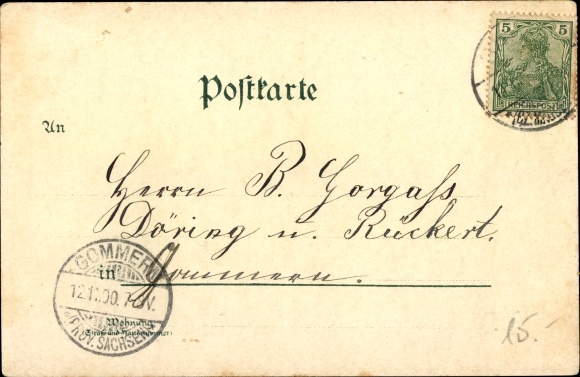 5 5
REICHSPOST
Postkarte
An
Herrn B. Gorgass
Döring u. Rückert.
in Gommern.
GOMMERN
7-8V.
PROV. SACHSEN
Wohnung
(Straße und Hausnummer)
15.-